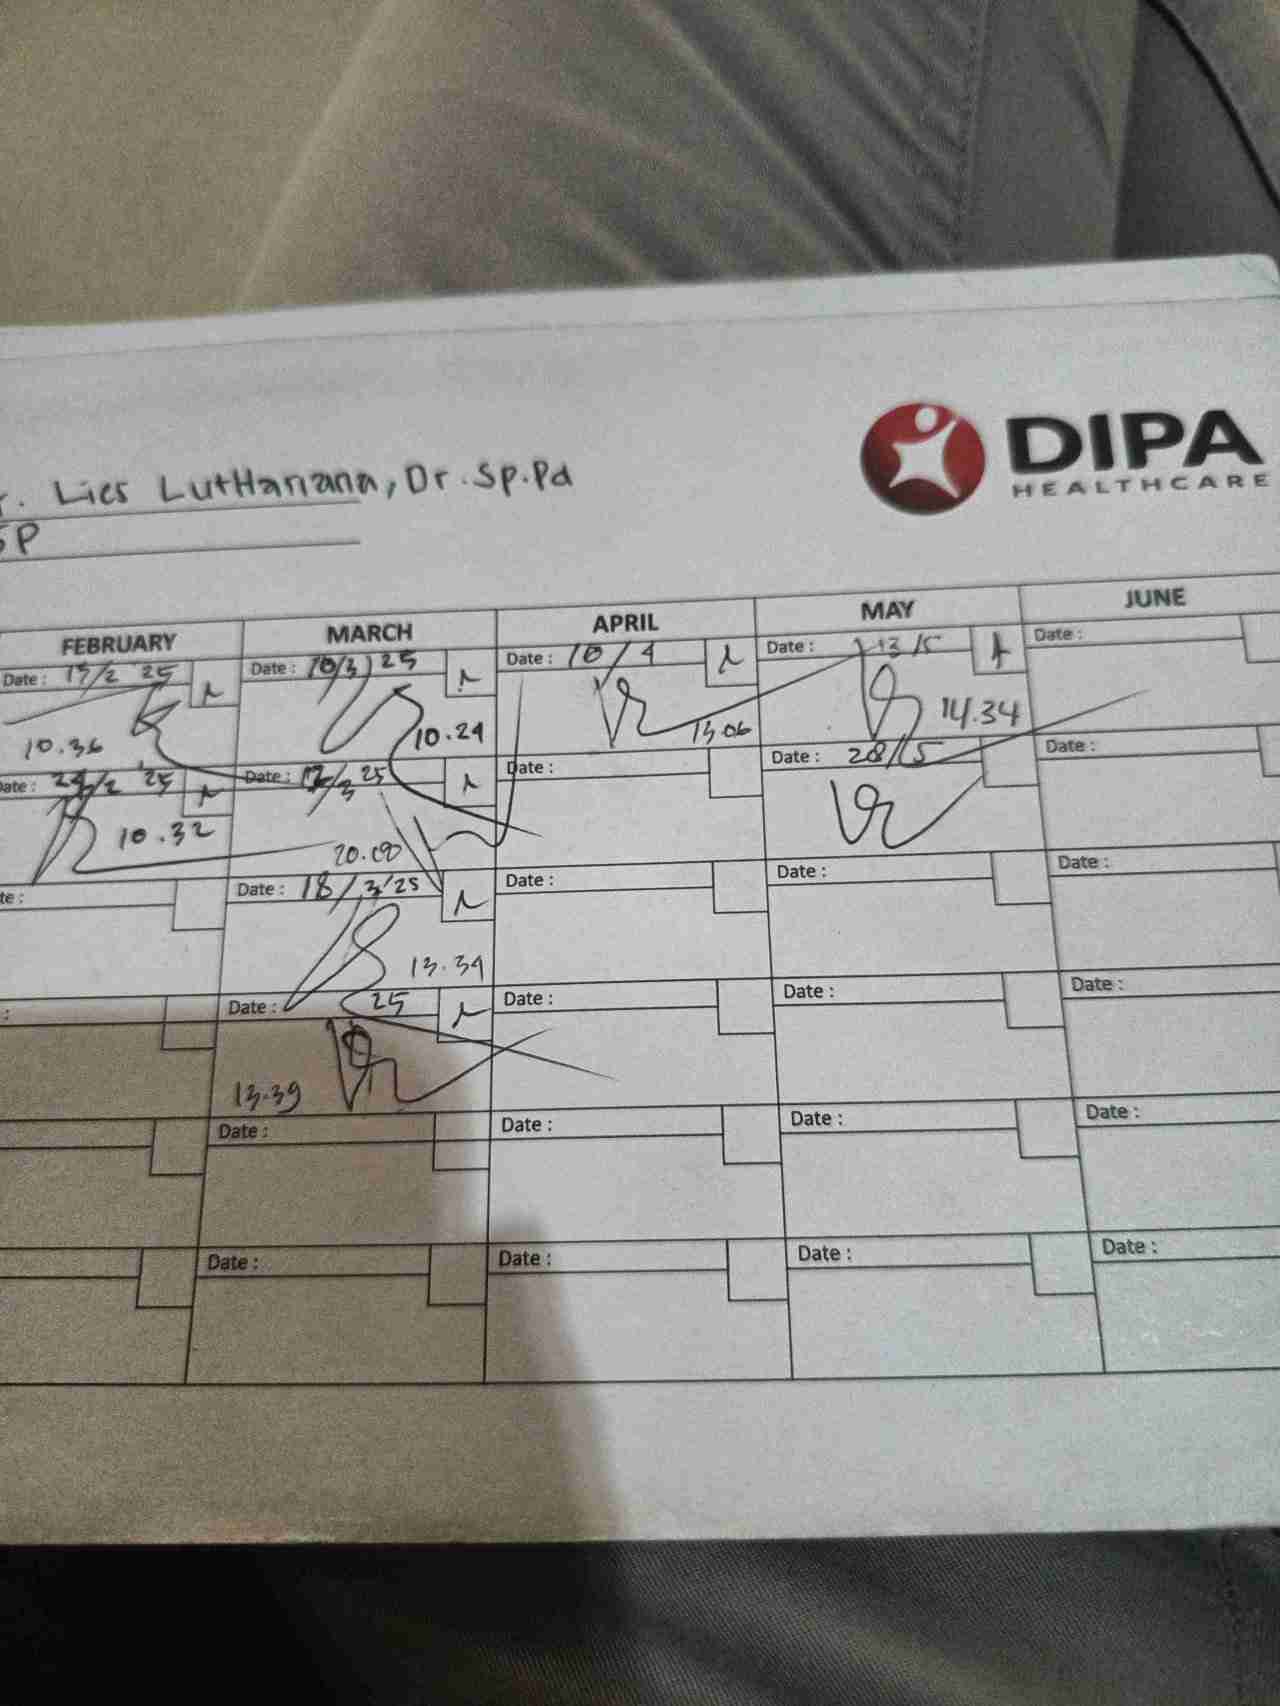 DIPA
HEALTHCARE
r. Lies LutHariana, Dr. Sp.Pd
SP
FEBRUARY MARCH APRIL MAY JUNE
Date : /2 25 Date : 10/3/25 Date : 10/4 Date : 13/5 Date :
10.36 10.24 13.06 14.34
ate : 24/2 '25 Date : /3 25 Date : Date : 28/5 Date :
10.32 20.00
te : Date : 18/3/25 Date : Date : Date :
13.34
: Date : 25 Date : Date : Date :
13.39
Date : Date : Date : Date :
Date : Date : Date : Date :